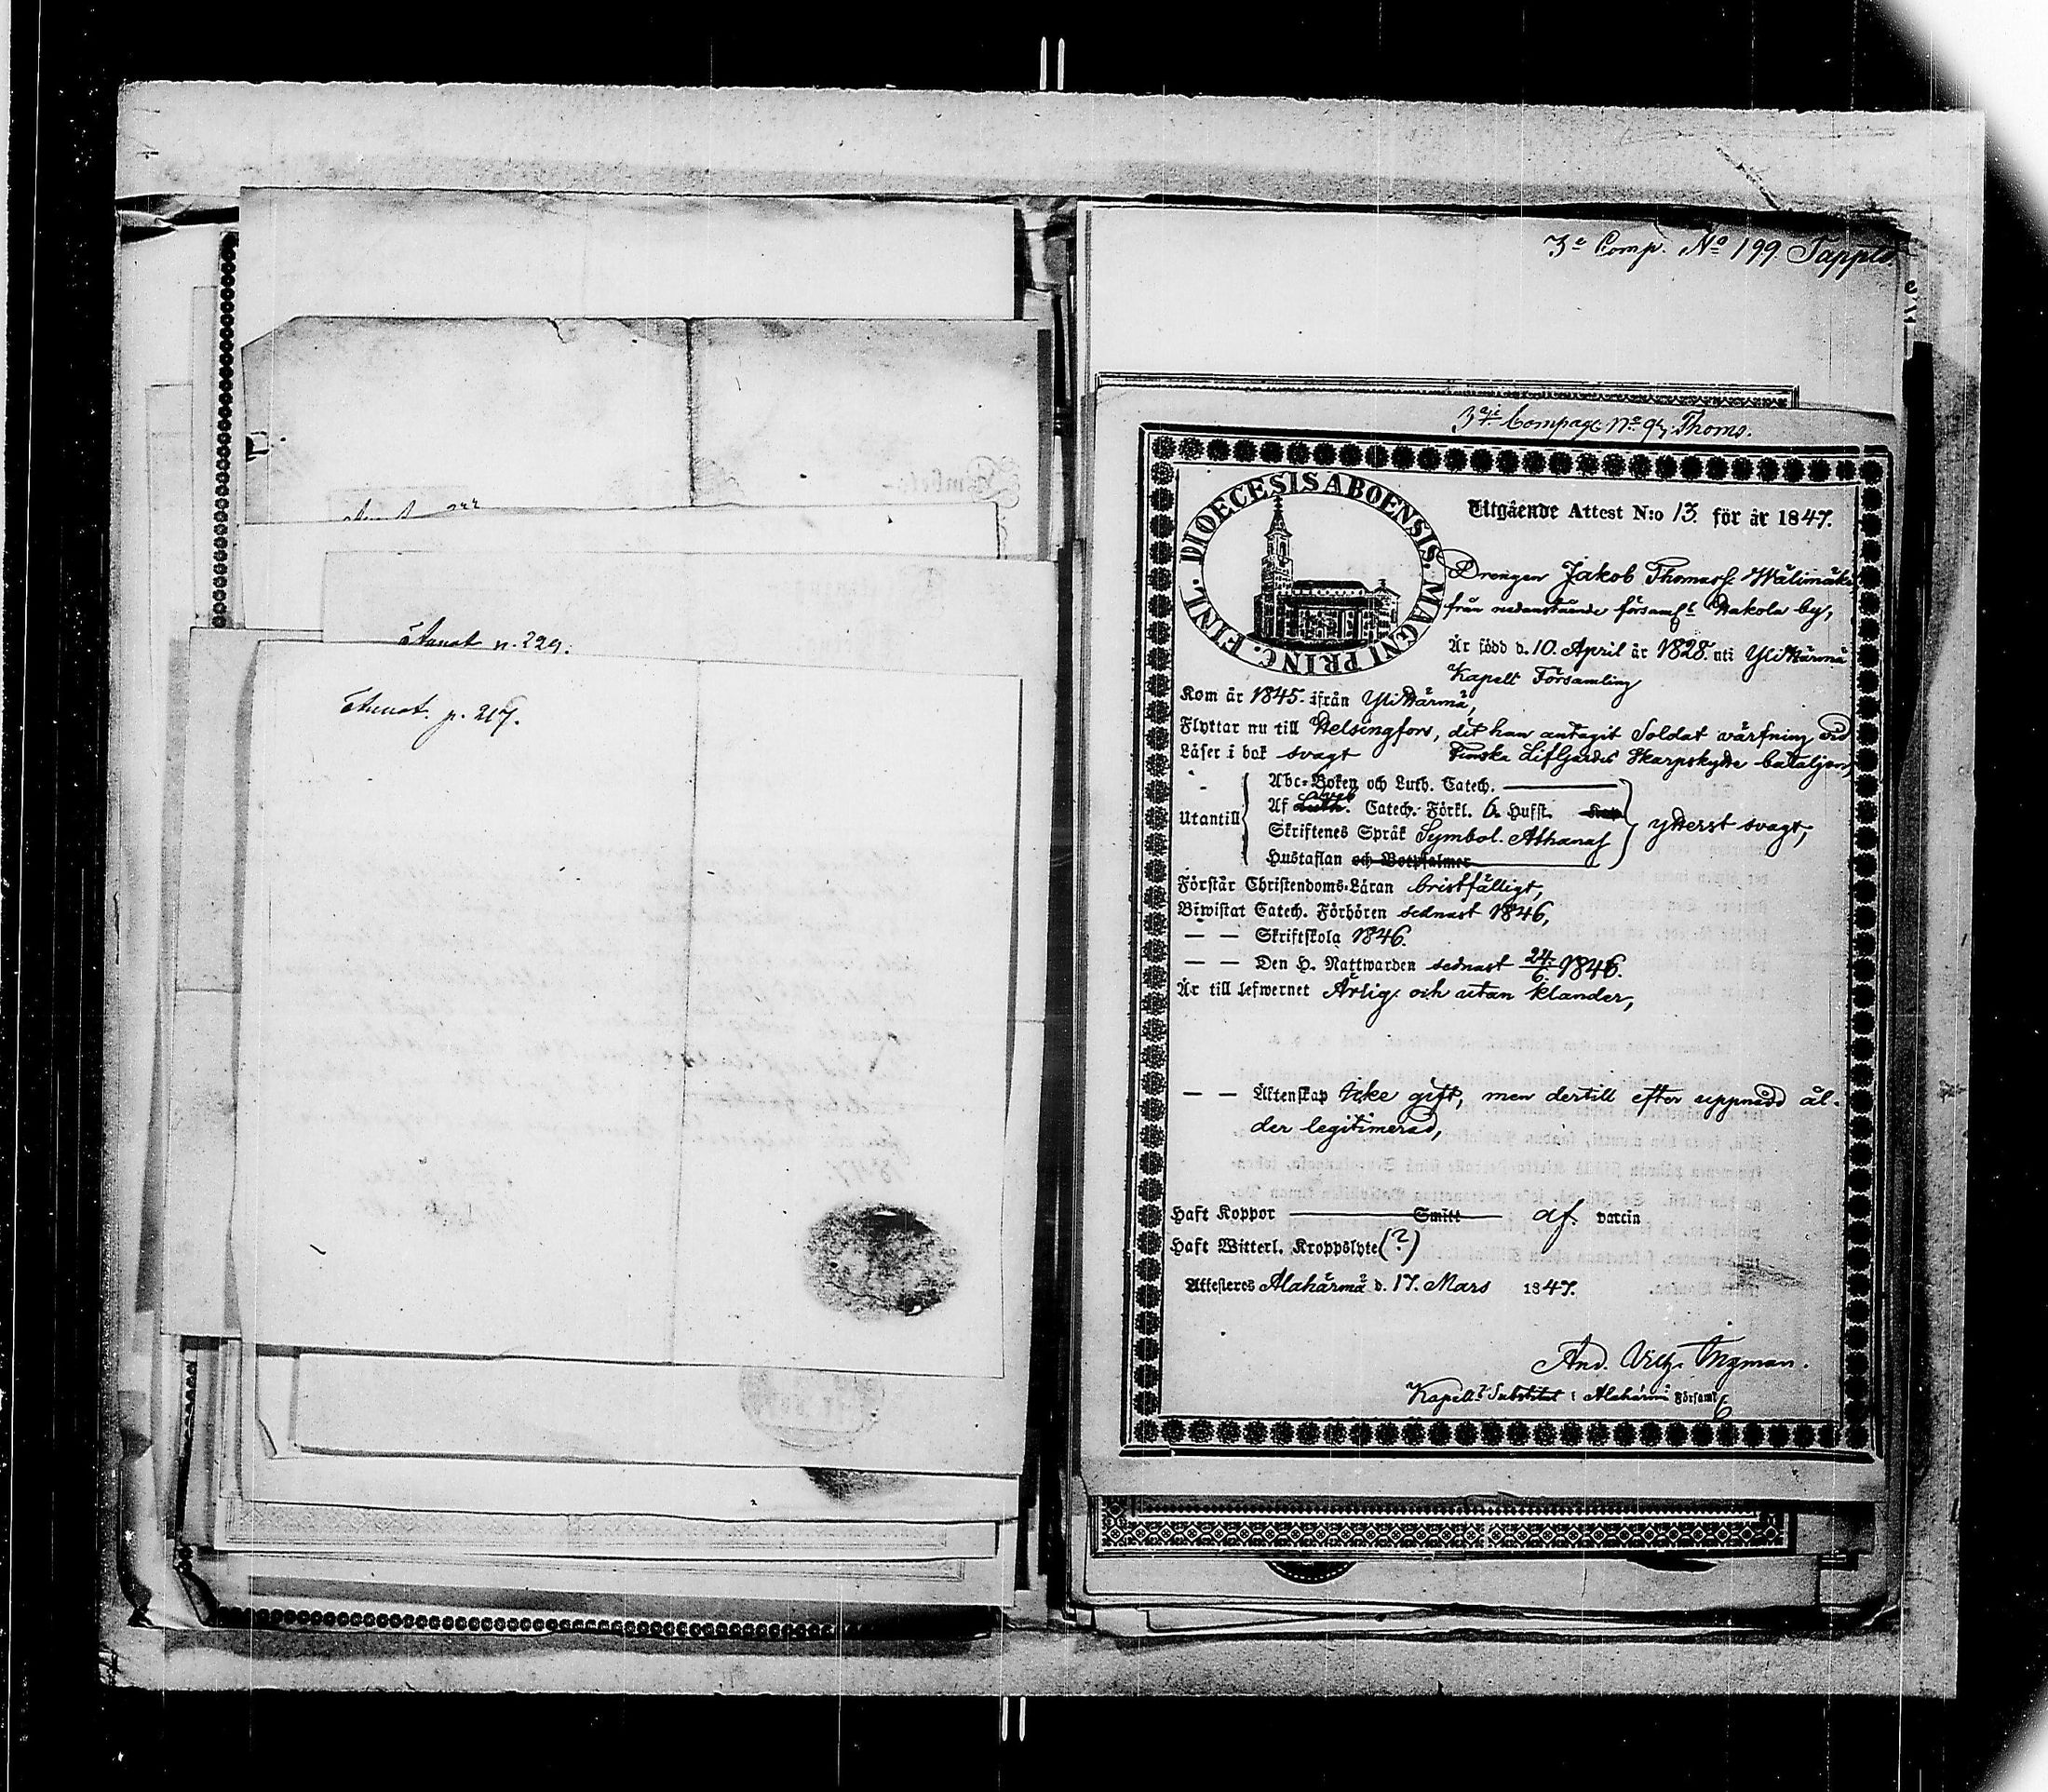 Etunat n. 229.
Etunat. p. 217.
3e Comp. No 199 Tapper
3dje Compage No 97. Thoms.
DIOECESIS ABOENSIS. MAGNI PRINC. FINL.
Utgående Attest N:o 13. för år 1847.
Drengen Jakob Thomass: Wälimäki
från nedanstående församl: Hakola by,
Är född d. 10. April år 1828. uti Ylihärmä
Kapell Församling
Kom år 1845. ifrån Ylihärmä,
Flyttar nu till Helsingfors, dit han antagit Soldat värfning vid
Läser i bok svagt Finska Lifgardes Skarpskytte bataljon,
Abc-Boken och Luth. Catech.
Utantill Af Luth. Catech. Förkl. 6. Hufst. Kap ytterst svagt,
Skriftenes Språk Symbol. Athanas
Hustaflan och Botpsalmer
Förstår Christendoms-Läran bristfälligt,
Biwistat Catech. Förhören sednast 1846,
— — Skriftskola 1846.
— — Den H. Nattwarden sednast 24/6. 1846.
Är till lefwernet Ärlig och utan klander,
— — Äktenskap Icke gift, men dertill efter uppnådd ål-
der legitimerad,
Haft Koppor Smitt af. vaccin
Haft Witterl. Kroppslyte (?)
Attesteres Alahärmä d. 17. Mars 1847.
And. Vilh. Ingman.
Kapell: Substitut i Alahärmä Församl